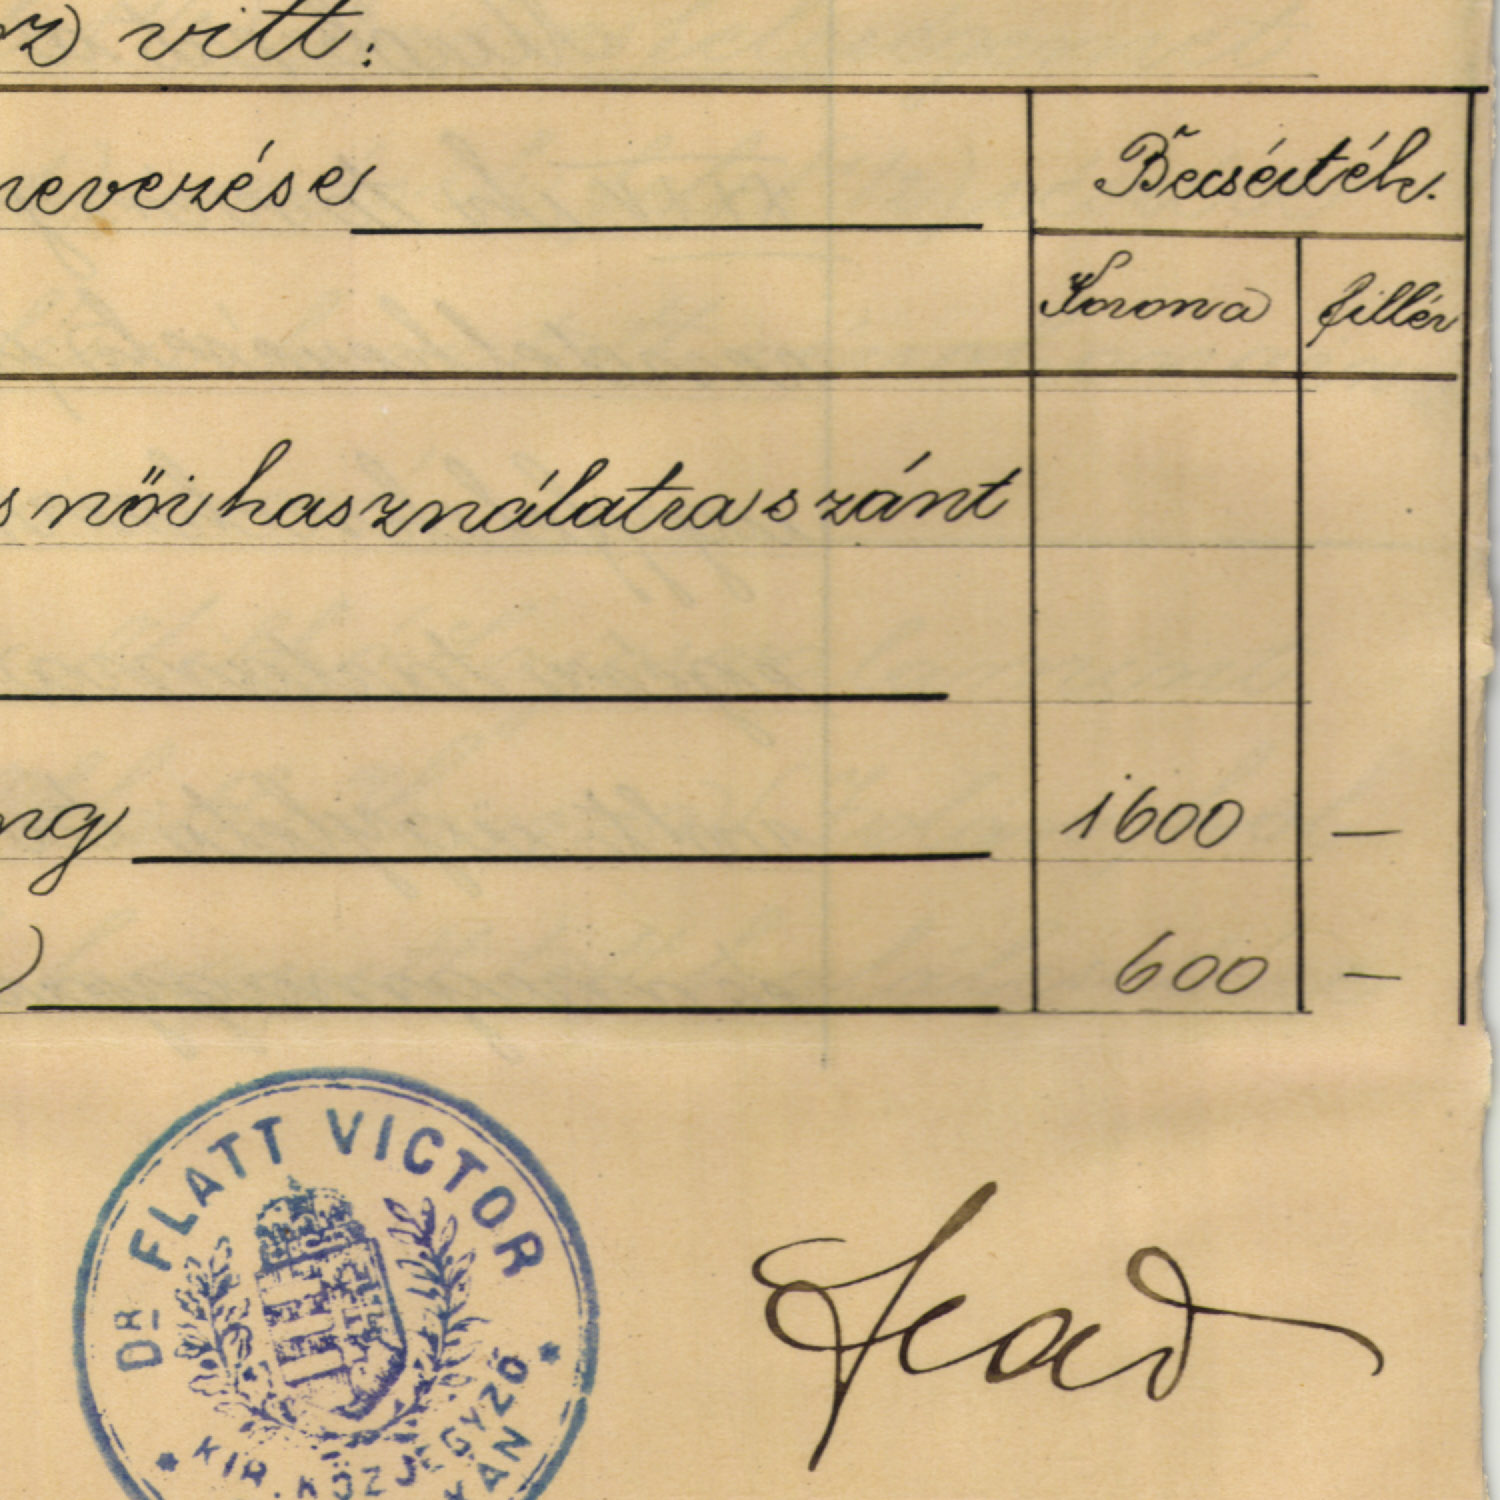 vitt:
nevezése
Becsérték.
Korona fillér
s női használatra szánt
ng 1600 —
) 600 —
DR FLATT VICTOR
* KIR. KÖZJEGYZŐ *